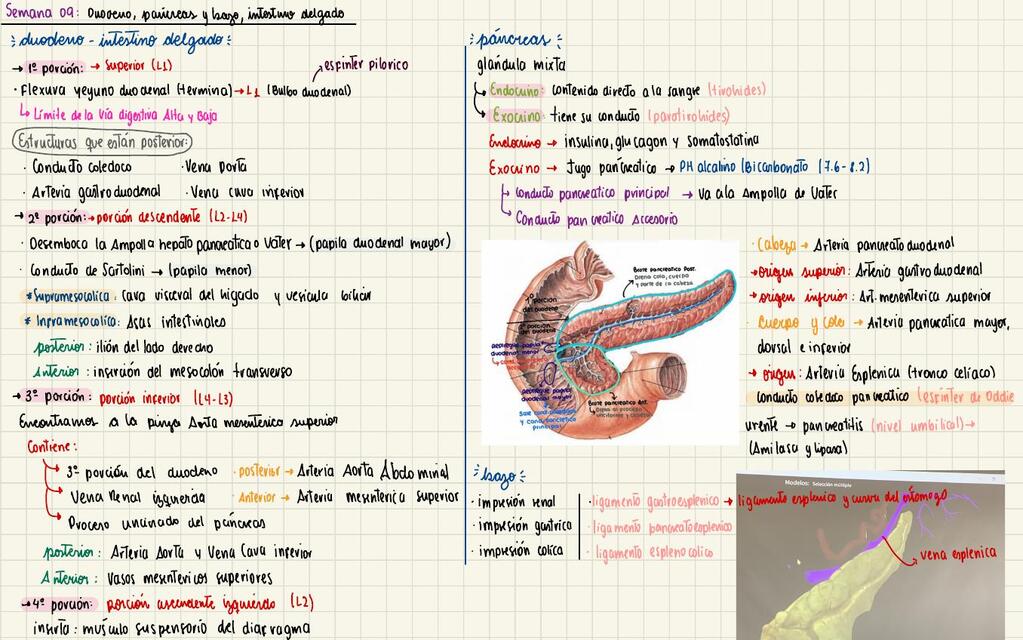 Semana 09: Duodeno, páncreas y bazo, intestino delgado
duodeno - intestino delgado:
→ 1º porción: → Superior (L1)
espinter pilorico
· Flexura yeyuno duodenal (termina) → L1 (Bulbo duodenal)
↳ Límite de la Vía digestiva Alta y Baja
Estructuras que están posterior:
· Conducto coledoco · Vena porta
· Arteria gastroduodenal · Vena cava inferior
→ 2º porción: → porción descendente (L2-L4)
· Desemboca la Ampolla hepato pancreatica o Vater → (papila duodenal mayor)
· Conducto de Sartolini → (papila menor)
* Supramesocolica: cava visceral del higado y vesicula biliar
* Inframesocolica: Asas intestinales
posterior: riñón del lado derecho
Anterior: inserción del mesocolón transverso
→ 3º porción: porción inferior (L4-L3)
Encontramos a la pinza Aorta mesentérica superior
Contiene:
→ 3º porción del duodeno · posterior → Arteria Aorta Abdominal
→ Vena Renal izquierda · Anterior → Arteria mesenterica superior
→ Proceso uncinado del páncreas
posterior: Arteria Aorta y Vena Cava inferior
Anterior: Vasos mesentericos superiores
→ 4º porción: porción ascendente izquierdo (L2)
inserta: músculo suspensorio del diafragma
páncreas
glandula mixta
Endocrino: contenido directo a la sangre (tirohides)
Exocrino: tiene su conducto (parotirohides)
Endocrino → insulina, glucagon y somatostatina
Exocrino → Jugo pancreatico → PH alcalino (Bicarbonato (7.6-8.2)
Conducto pancreatico principal → Va a la Ampolla de Vater
Conducto pancreatico Accesorio
Brote pancreatico Post.
Drena cola, cuerpo
y parte de la cabeza
1º porción
del duodeno
porción
del duodeno
duodenal menor
duodenal mayor
y conducto pancreatico
principal
Brote pancreatico Ant.
· Cabeza → Arteria pancreato duodenal
→ origen superior: Arteria gastroduodenal
→ origen inferior: Art. mesenterica superior
· Cuerpo y cola → Arteria pancreatica mayor,
dorsal e inferior
→ origen: Arteria Esplenica (tronco celíaco)
Conducto coledoco pancreatico (espinter de Oddie
urente → pancreatitis (nivel umbilical) →
(Amilasa y lipasa)
bazo
· impresión renal · ligamento gastroesplenico → ligamento esplenico y curva del estomago
· impresión gastrica · ligamento pancreatoesplenico
· impresión colica · ligamento esplenocolico
Modelos: Selección múltiple
vena esplenica